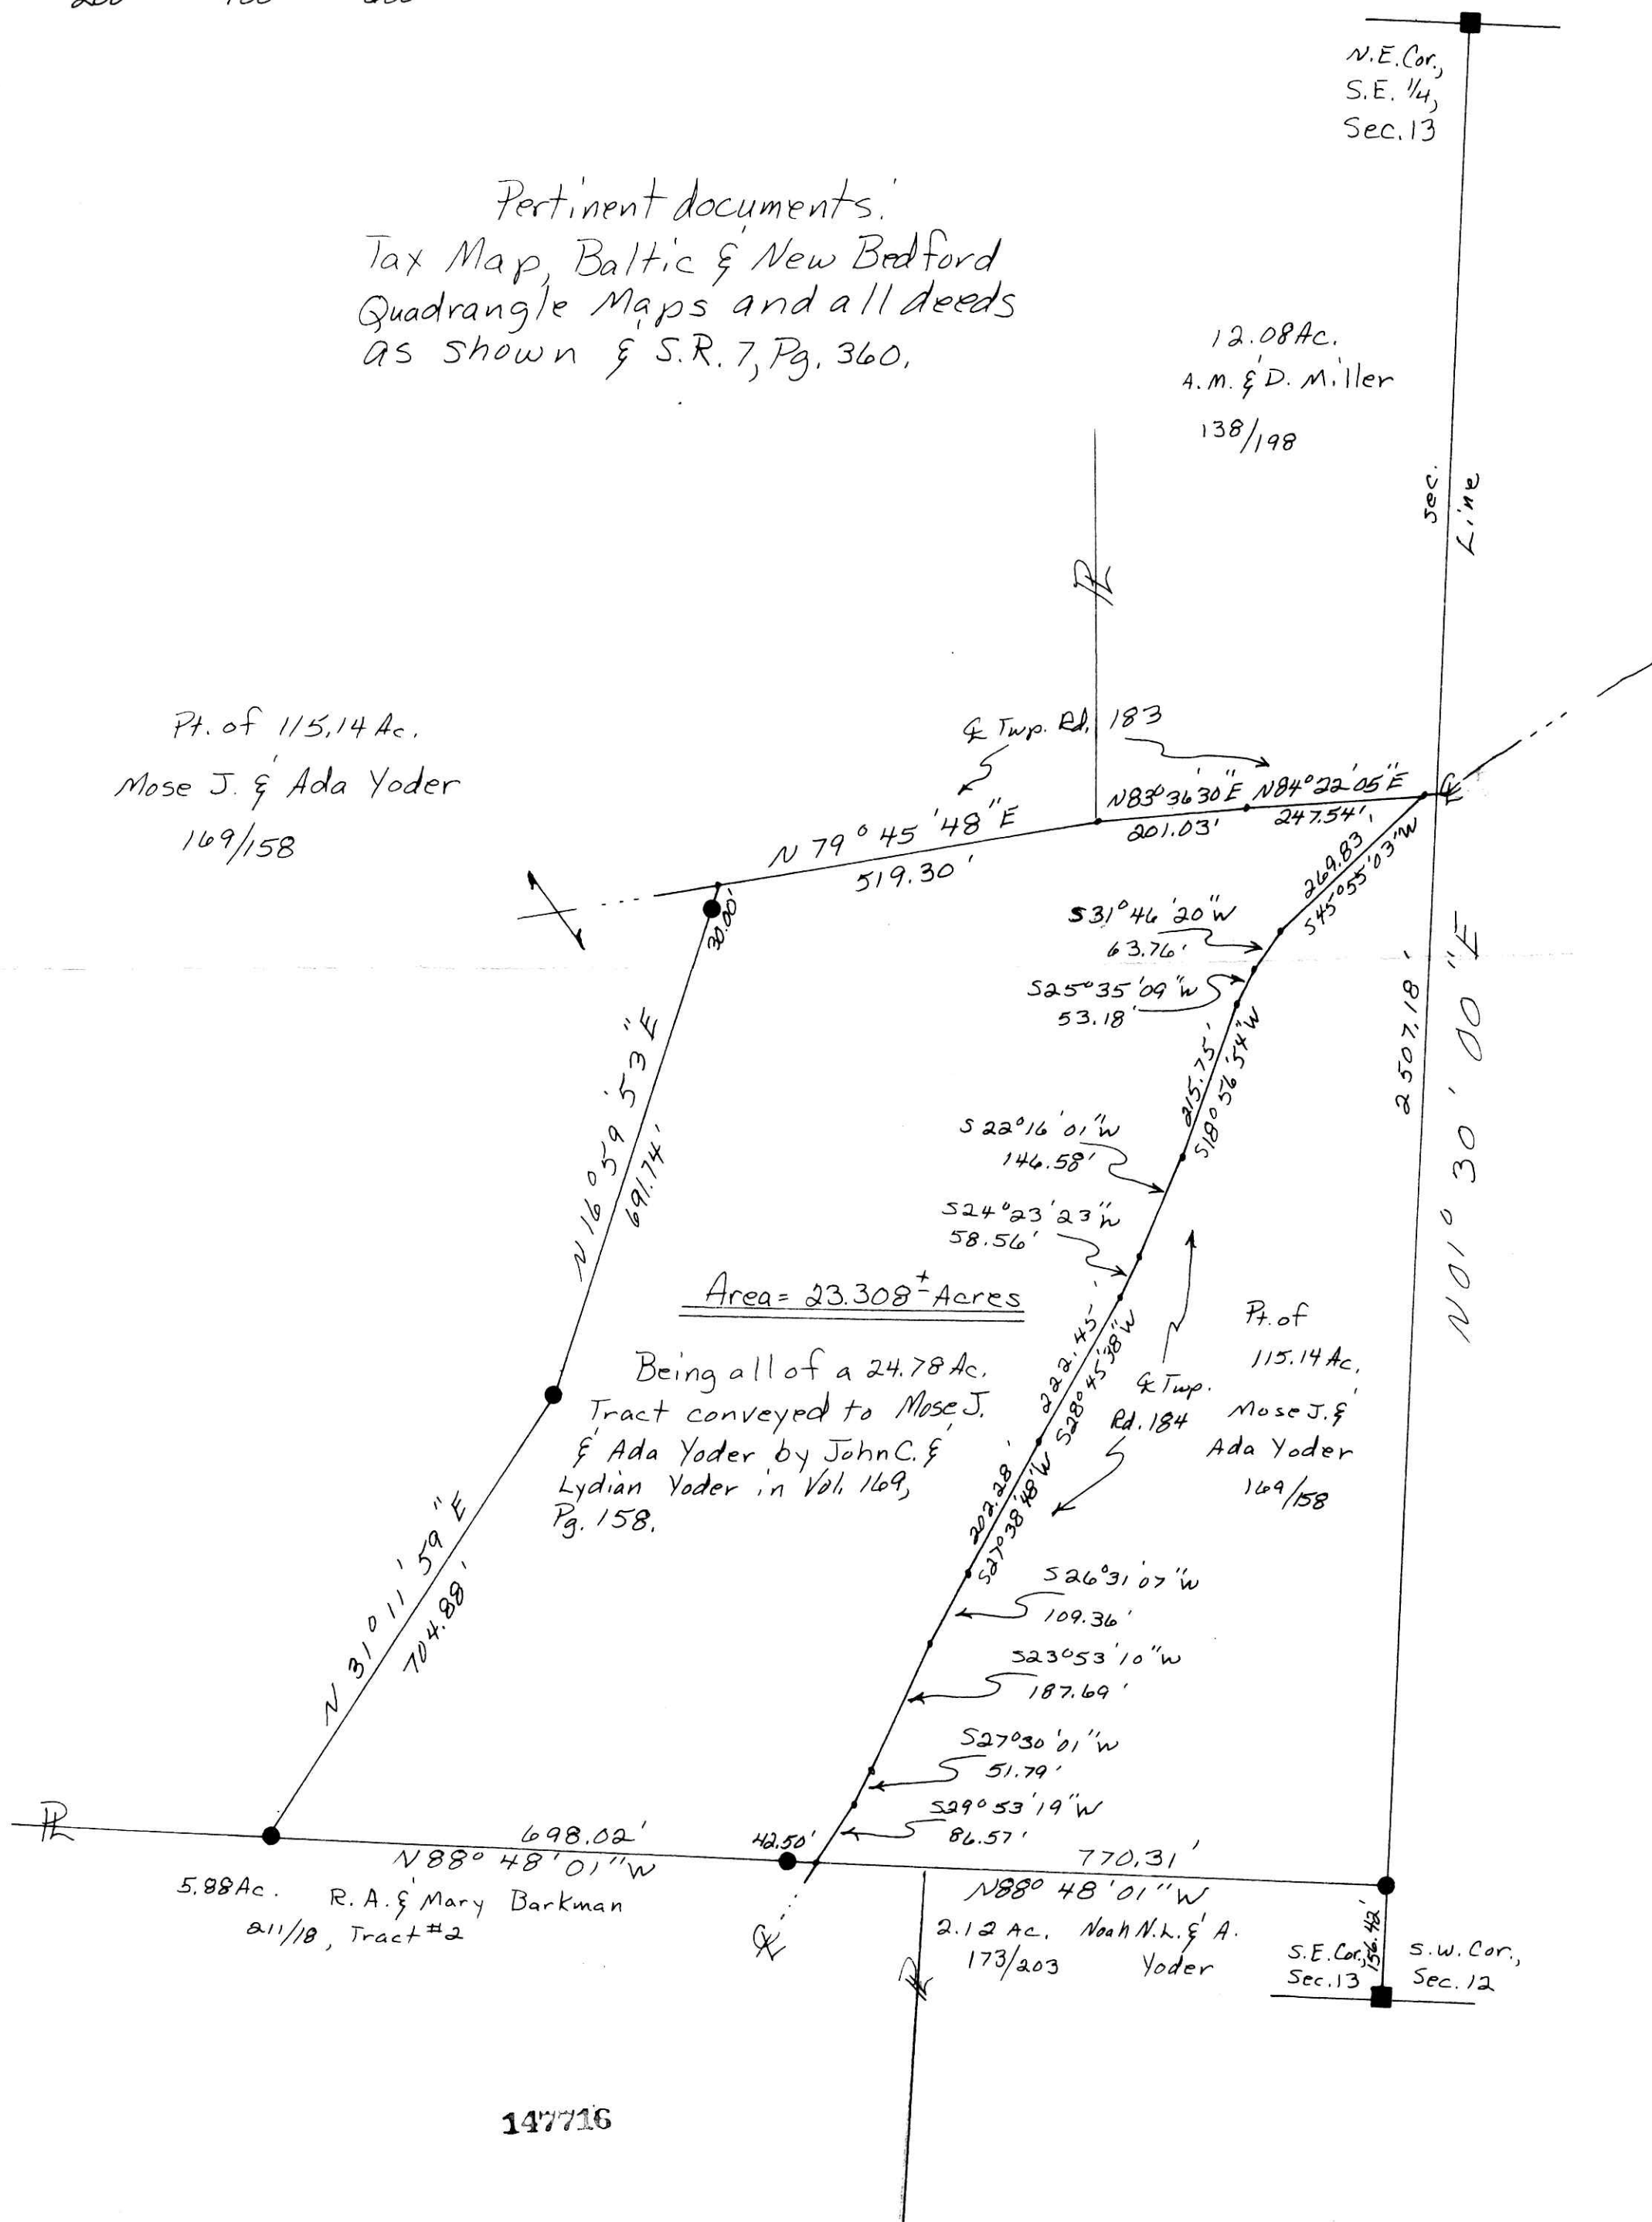 N.E. Cor.,
S.E. 1/4,
Sec. 13
Pertinent documents:
Tax Map, Baltic & New Bedford
Quadrangle Maps and all deeds
as shown & S.R. 7, Pg. 360.
12.08 Ac.
A.M. & D. Miller
138/198
Sec.
Line
PL
Pt. of 115.14 Ac.
Mose J. & Ada Yoder
169/158
CL Twp. Rd. 183
N 79° 45' 48" E
519.30'
N83° 36' 30" E
201.03'
N84° 22' 05" E
247.54'
CL
269.83
S45° 55' 03" W
30.00'
S31° 46' 20" W
63.76'
S25° 35' 09" W
53.18'
215.75'
S18° 56' 54" W
N 16° 59' 53" E
691.74'
2507.18'
N 01° 30' 00" E
S 22° 16' 01" W
146.58'
S24° 23' 23" W
58.56'
Area = 23.308± Acres
222.45'
S28° 45' 38" W
Being all of a 24.78 Ac.
Tract conveyed to Mose J.
& Ada Yoder by John C. &
Lydian Yoder in Vol. 169,
Pg. 158.
CL Twp.
Rd. 184
Pt. of
115.14 Ac.
Mose J. &
Ada Yoder
169/158
202.28'
S27° 38' 48" W
N 31° 11' 59" E
704.88'
S26° 31' 07" W
109.36'
S23° 53' 10" W
187.69'
S27° 30' 01" W
51.79'
S29° 53' 19" W
86.57'
PL
698.02'
N88° 48' 01" W
42.50'
770.31'
N88° 48' 01" W
5.88 Ac. R. A. & Mary Barkman
211/18, Tract #2
CL
2.12 Ac. Noah N.L. & A.
173/203 Yoder
PL
156.42'
S.E. Cor.,
Sec. 13
S.W. Cor.,
Sec. 12
147716